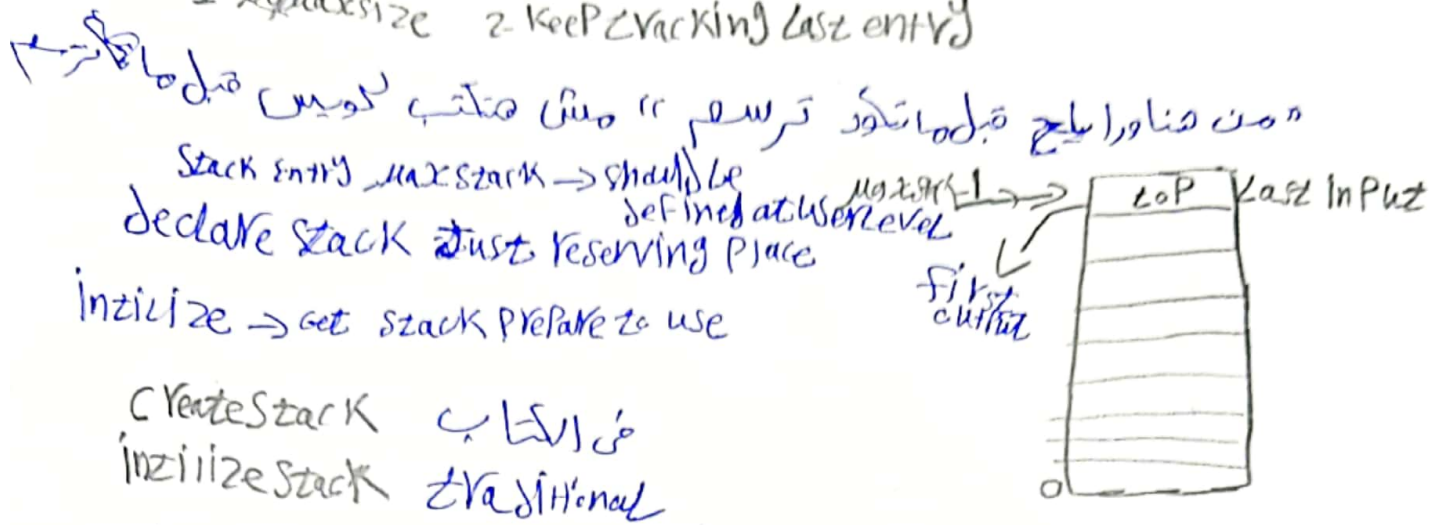 size 2- Keep tracking last entry
"من هنا ورايح قبل ما تكود ترسم" مش هتكتب كويس قبل ما ترسم
Stack Entry, Maxstack → should be
defined at user level
declare stack Just reserving place
intilize → Get stack prepare to use
Createstack فى الكتاب
intilize stack traditional
top Last input
first
output
0